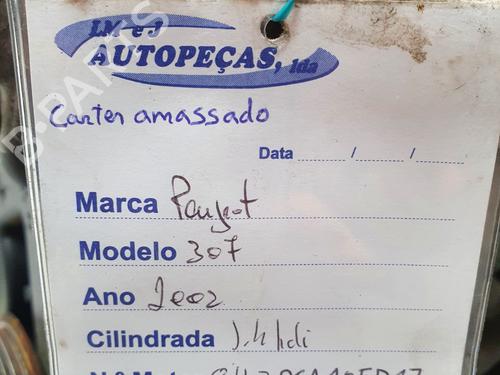 LM e J
AUTOPEÇAS, lda
Carter amassado
Data / / /
Marca Peugeot
Modelo 307
Ano 2002
Cilindrada 1.4 hdi
B-PARTS